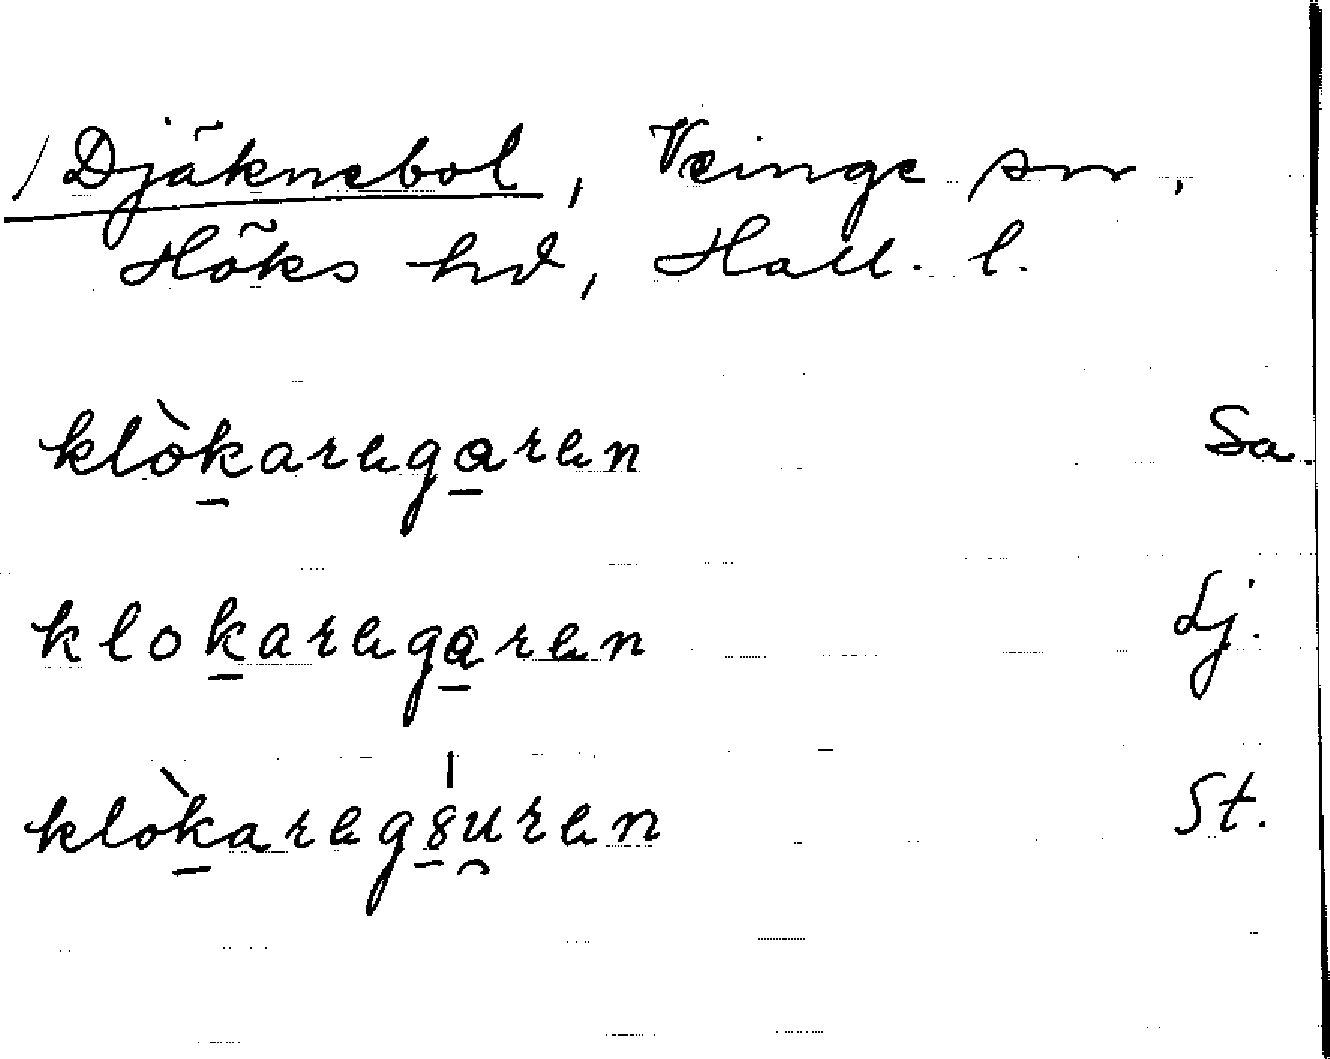 / Djäknebol, Veinge sn,
Höks hd, Hall. l.
klòkaregaren Sa.
klokaregaren Lj.
klòkaregauren St.